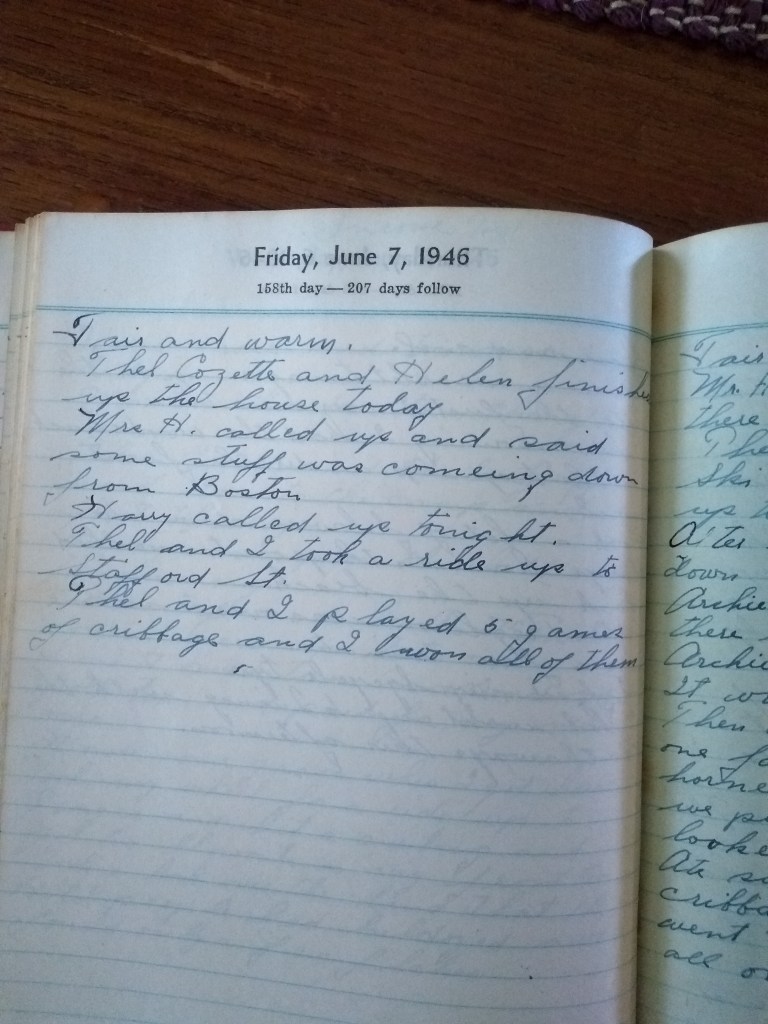 Friday, June 7, 1946
158th day — 207 days follow
Fair and warm.
Thel Cozette and Helen finishe
up the house today
Mrs H. called up and said
some stuff was comeing down
from Boston
Harry called up tonight.
Thel and I took a ride up to
Stafford St.
Thel and I played 5 games
of cribbage and I won all of them
Fair
Mr. H
there
The
Ski
up t
After
down
Archie
there
Archie
It wa
Then
one fo
horne
we p
looke
Ate su
cribba
went
all o